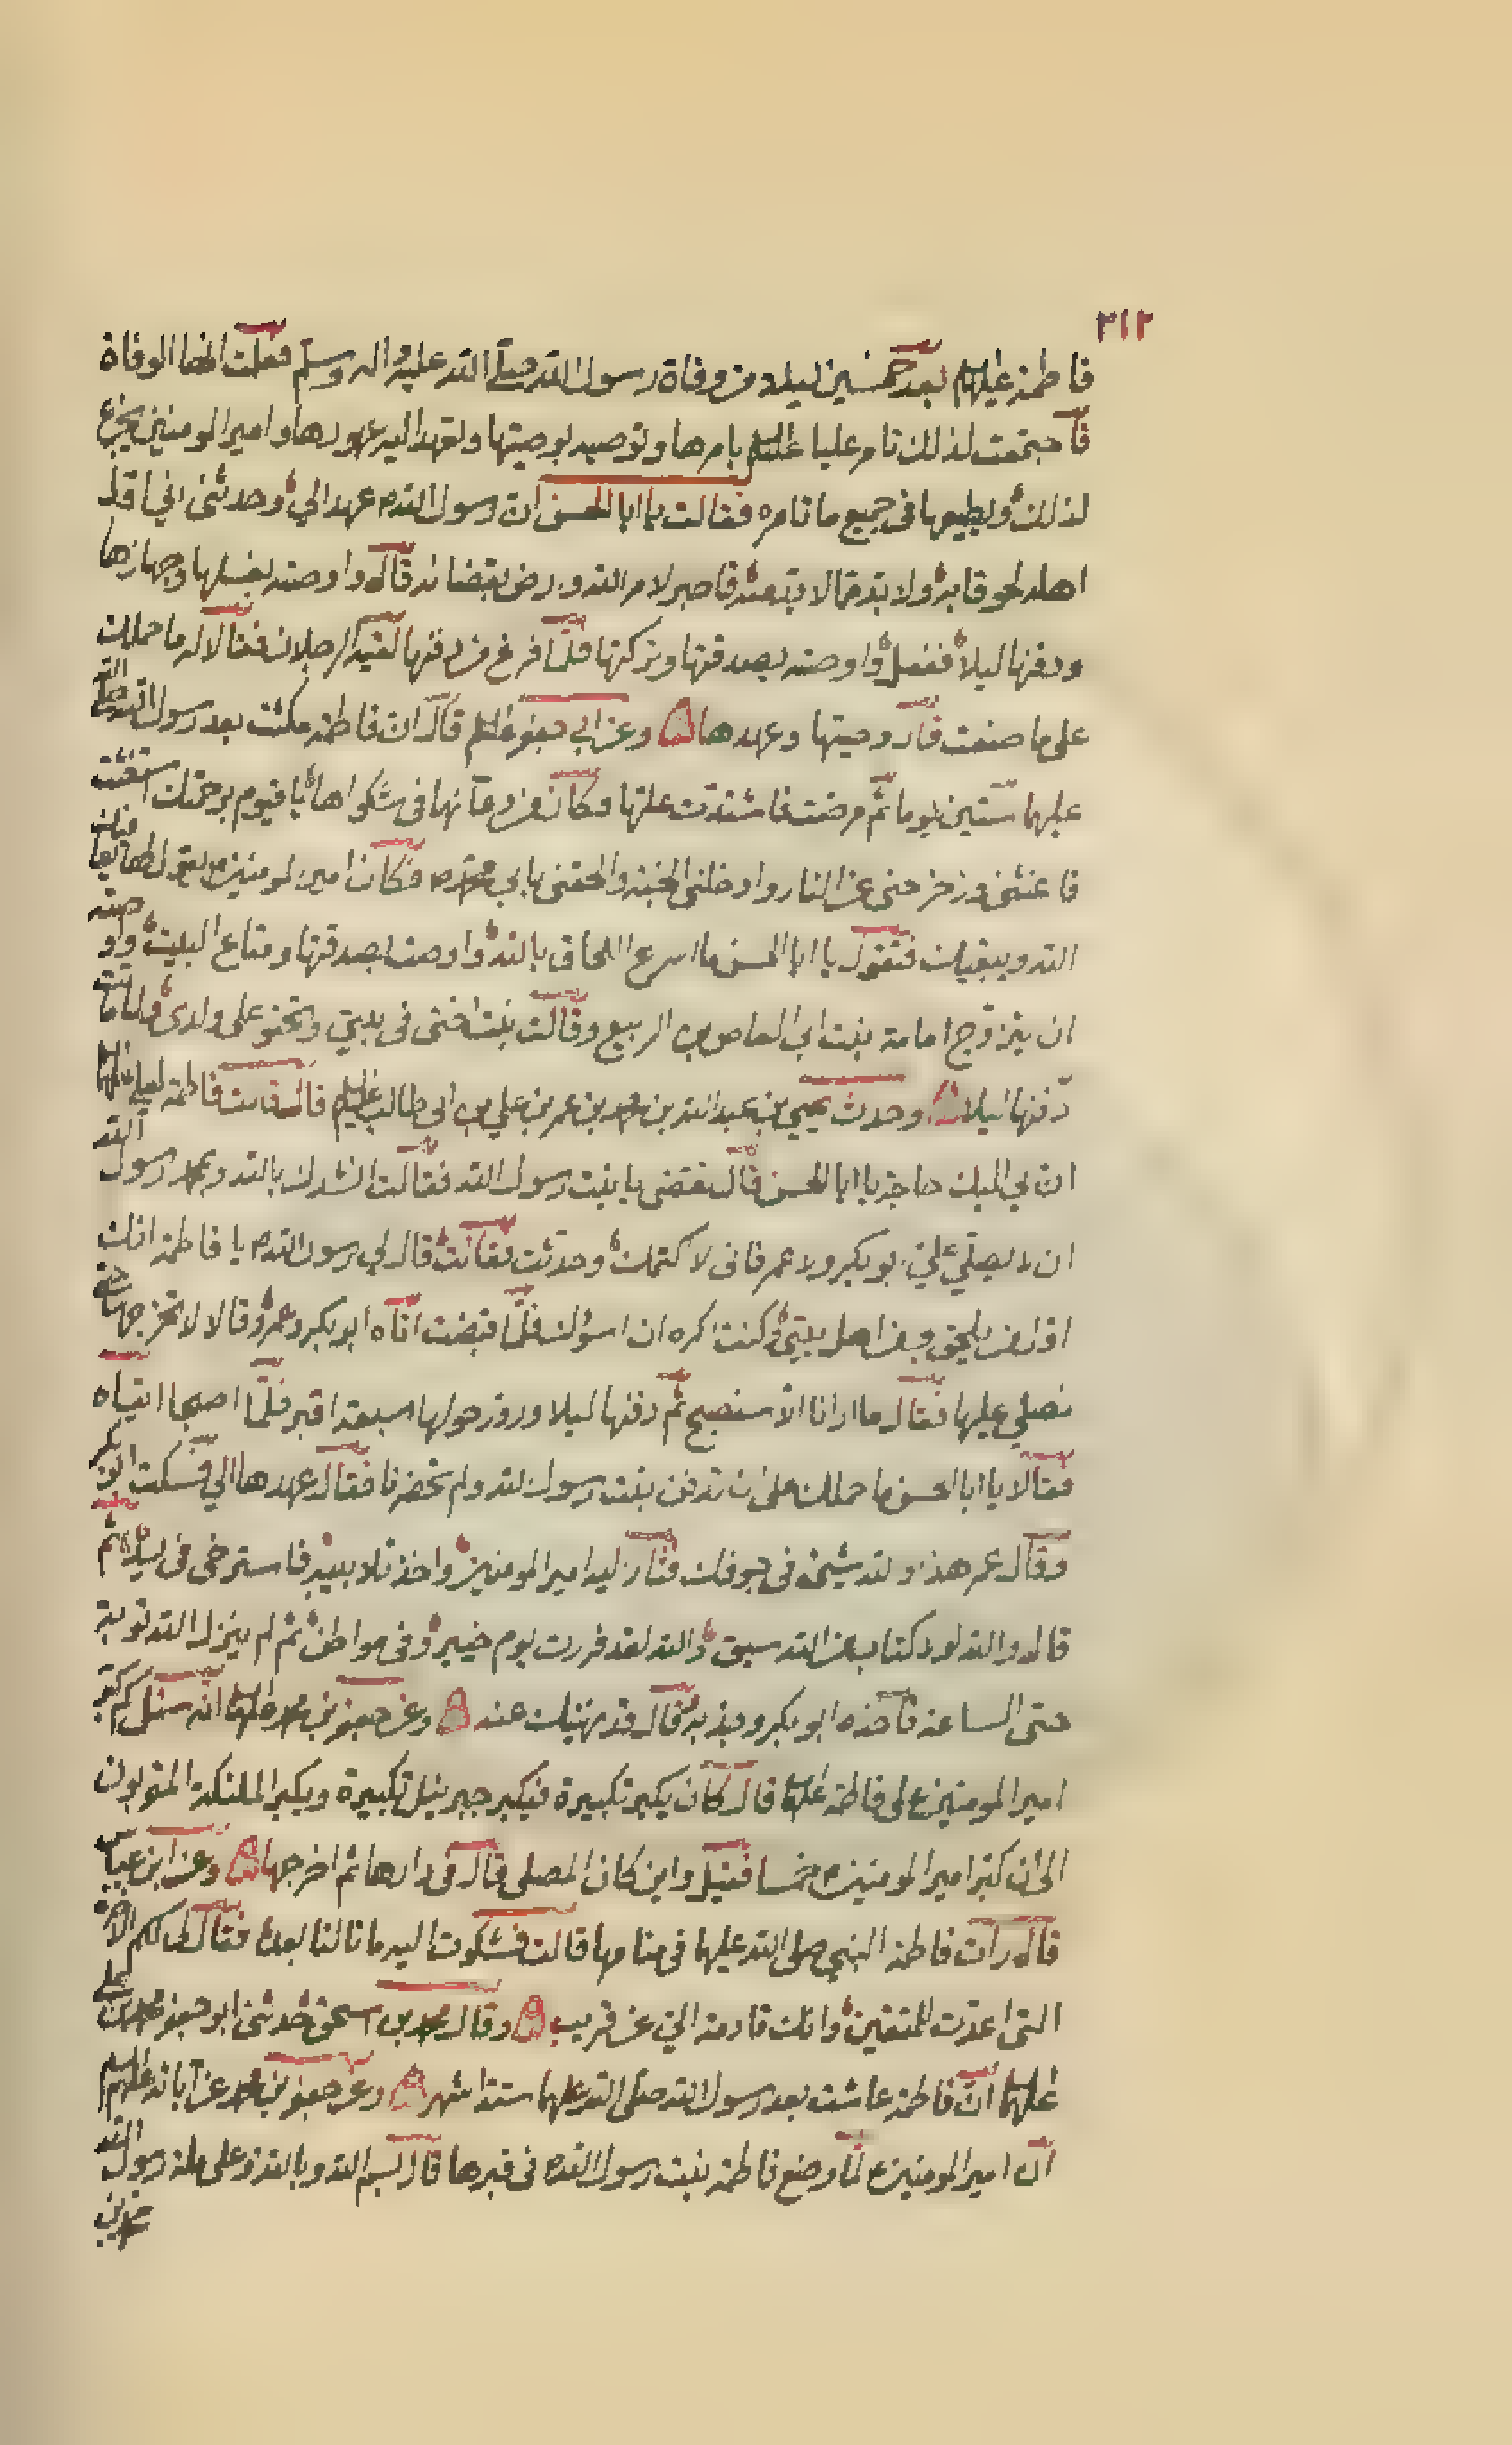 ٣١٢
فاطمة عليها السلم بعد خمسين ليلة من وفاة رسول الله صلى الله عليه واله وسلم فعلمت انها الوفاة
فاجتمعت لذلك تامر عليا عليه السلم بامرها وتوصيه بوصيتها وتعهد اليه عهودها وامير المومنين يجزع
لذلك ويطيعها في جميع ما تامره فقالت يا ابا الحسن ان رسول الله ص عهد الي وحدثني اني اول
اهله لحوقا به ولا بد مما لا بد منه فاصبر لامر الله وارض بقضائه قال واوصته بغسلها وجهازها
ودفنها ليلا ففعل واوصته بصدقتها وتركتها فلما فرغ من دفنها لقيه الرجلان فقالا له ما حملك
على ما صنعت قال وصيتها وعهدها وعن ابي جعفر عليه السلم قال ان فاطمة مكثت بعد رسول الله صلى الله
عليهما ستين يوما ثم مرضت فاشتدت علتها وكان من دعائها في شكواها يا قيوم برحمتك استغثت
فاغثني وزحزحني عن النار وادخلني الجنة والحقني بابي محمد ص فكان امير المومنين ع يقول لها يعافيك
الله ويبقيك فتقول يا ابا الحسن ما اسرع اللحاق بالله واوصت بصدقتها ومتاع البيت واوصته
ان يتزوج امامة بنت ابي العاص بن الربيع وقالت بنت اختي في بيتي وتحنو على ولدي ولما ماتت
دفنها ليلا وحدث يحيى بن عبد الله بن محمد بن عمر بن علي بن ابي طالب عليه السلم قال قالت فاطمة لعلي عليهما السلم
ان لي اليك حاجة يا ابا الحسن قال تقضى يا بنت رسول الله فقالت انشدك بالله وبمحمد رسول الله
ان لا يصلي علي ابو بكر ولا عمر فاني لا كتمتك وحدثت فقالت قال لي رسول الله ص يا فاطمة انك
اول من يلحق بي من اهل بيتي وكنت اكره ان اسوك فلما قبضت اتاه ابو بكر وعمر وقالا لا تخرجها حتى
نصلي عليها فقال ما ارانا الا سنصبح ثم دفنها ليلا ودور حولها سبعة اقبر فلما اصبحا اتياه
فقالا يا ابا الحسن ما حملك على ان تدفن بنت رسول الله ولم تحضرنا فقال عهدها الي فسكت ابو بكر
وقال عمر هذا والله شيئ في جوفك فثار اليه امير المومنين واخذ تلابيبه فاسترخى في يده ثم
قال والله لولا كتاب من الله سبق والله لقد فررت يوم خيبر وفي مواطن ثم لم ينزل الله توبة
حتى الساعة فاخذه ابو بكر وجذبه وقال قد نهيتك عنه وعن جعفر بن محمد عليهما السلم انه سئل كم كبر
امير المومنين على فاطمة عليها السلم قال كان يكبر تكبيرة فيكبر جبرئيل تكبيرة ويكبر الملئكة المقربون
الى ان كبر امير المومنين ع خمسا فقيل واين كان المصلى قال في دارها ثم اخرجها وعن ابن عباس
قال رات فاطمة النبي صلى الله عليهما في منامها قالت فشكوت اليه ما نالنا بعده فقال لي لكم الاخرة
التي اعدت للمتقين وانك قادمة الي عن قريب وقال محمد بن اسحق حدثني ابو جعفر محمد بن علي
عليهما السلم ان فاطمة عاشت بعد رسول الله صلى الله عليهما ستة اشهر وعن جعفر بن محمد عن ابائه عليهم السلم
ان امير المومنين ع لما وضع فاطمة بنت رسول الله ص في قبرها قال بسم الله وبالله وعلى ملة رسول الله
محمد بن